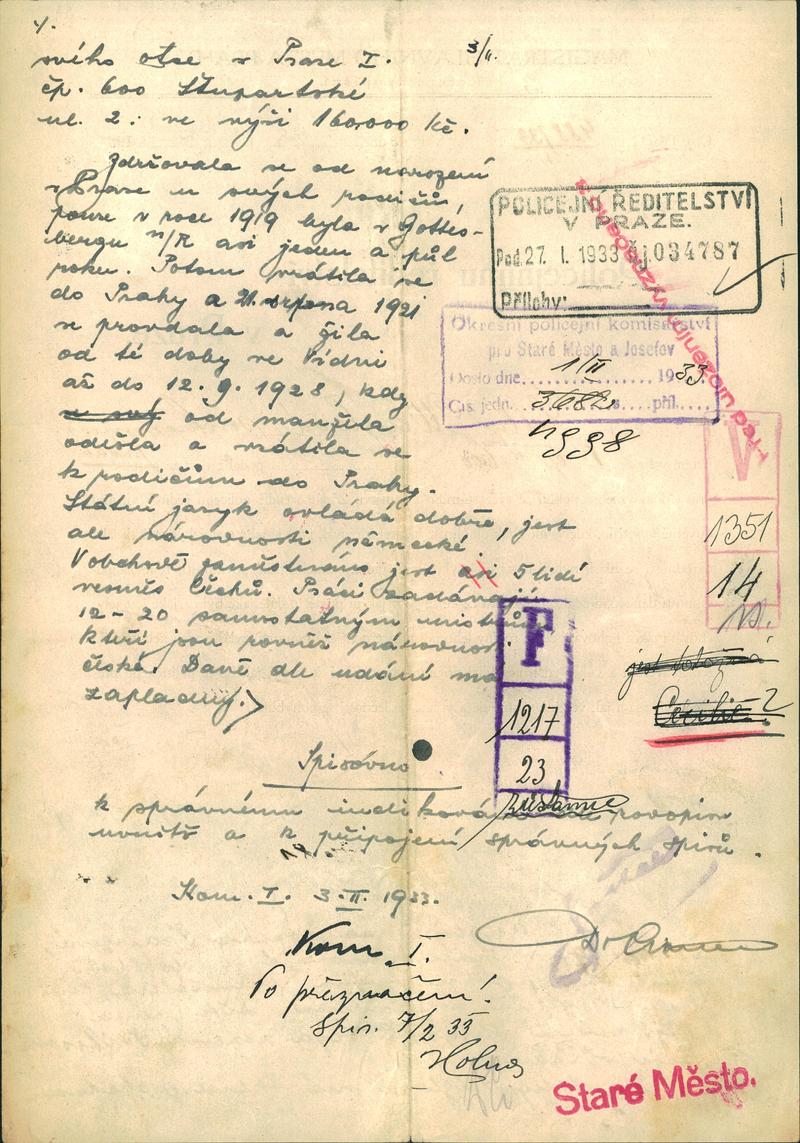 4.
svého otce v Praze I. 3/II.
čp. 600 Štupartské
ul. 2. ve výši 160.000 Kč.
Zdržovala se od narození
v Praze u svých rodičů,
pouze v roce 1919 byla v Gottes-
bergu n/R asi jeden a půl
roku. Potom vrátila se
do Prahy a 21. srpna 1921
se provdala a žila
od té doby ve Vídni
až do 12. 9. 1928, kdy
od manžela
odešla a vrátila se
k rodičům do Prahy.
Státní jazyk ovládá dobře, jest
ale národnosti německé.
V obchodě zaměstnáno jest asi 5 lidí
vesměs Čechů. Práci zadávají
12-20 samostatným mistrům
kteří jsou rovněž národnosti
české. Daně dle udání má
zaplaceny.
POLICEJNÍ ŘEDITELSTVÍ
V PRAZE.
Pod. 27. I. 1933 čj. 034787
Přílohy:
Okresní policejní komisařství
pro Staré Město a Josefov
Došlo dne 1/II 1933
Čís. jedn. 3682 příl.
4998
V
1351
14
F
1217
23
jest totožná
Cecilie?
Spisovna
k správnému
a k připojení správných spisů.
Kom. I. 3. II. 1933.
Kom I.
Po přeznačení.
Spis. 7/2 33
Staré Město.